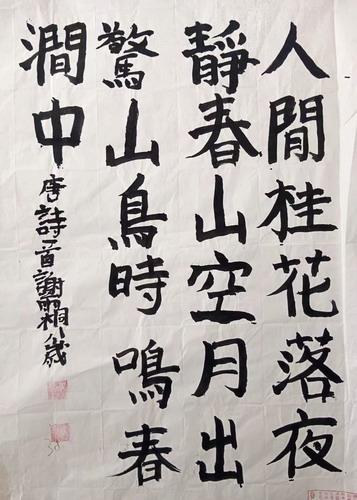 人閒桂花落夜
靜春山空月出
驚山鳥時鳴春
澗中
唐詩一首謝雨桐八歲